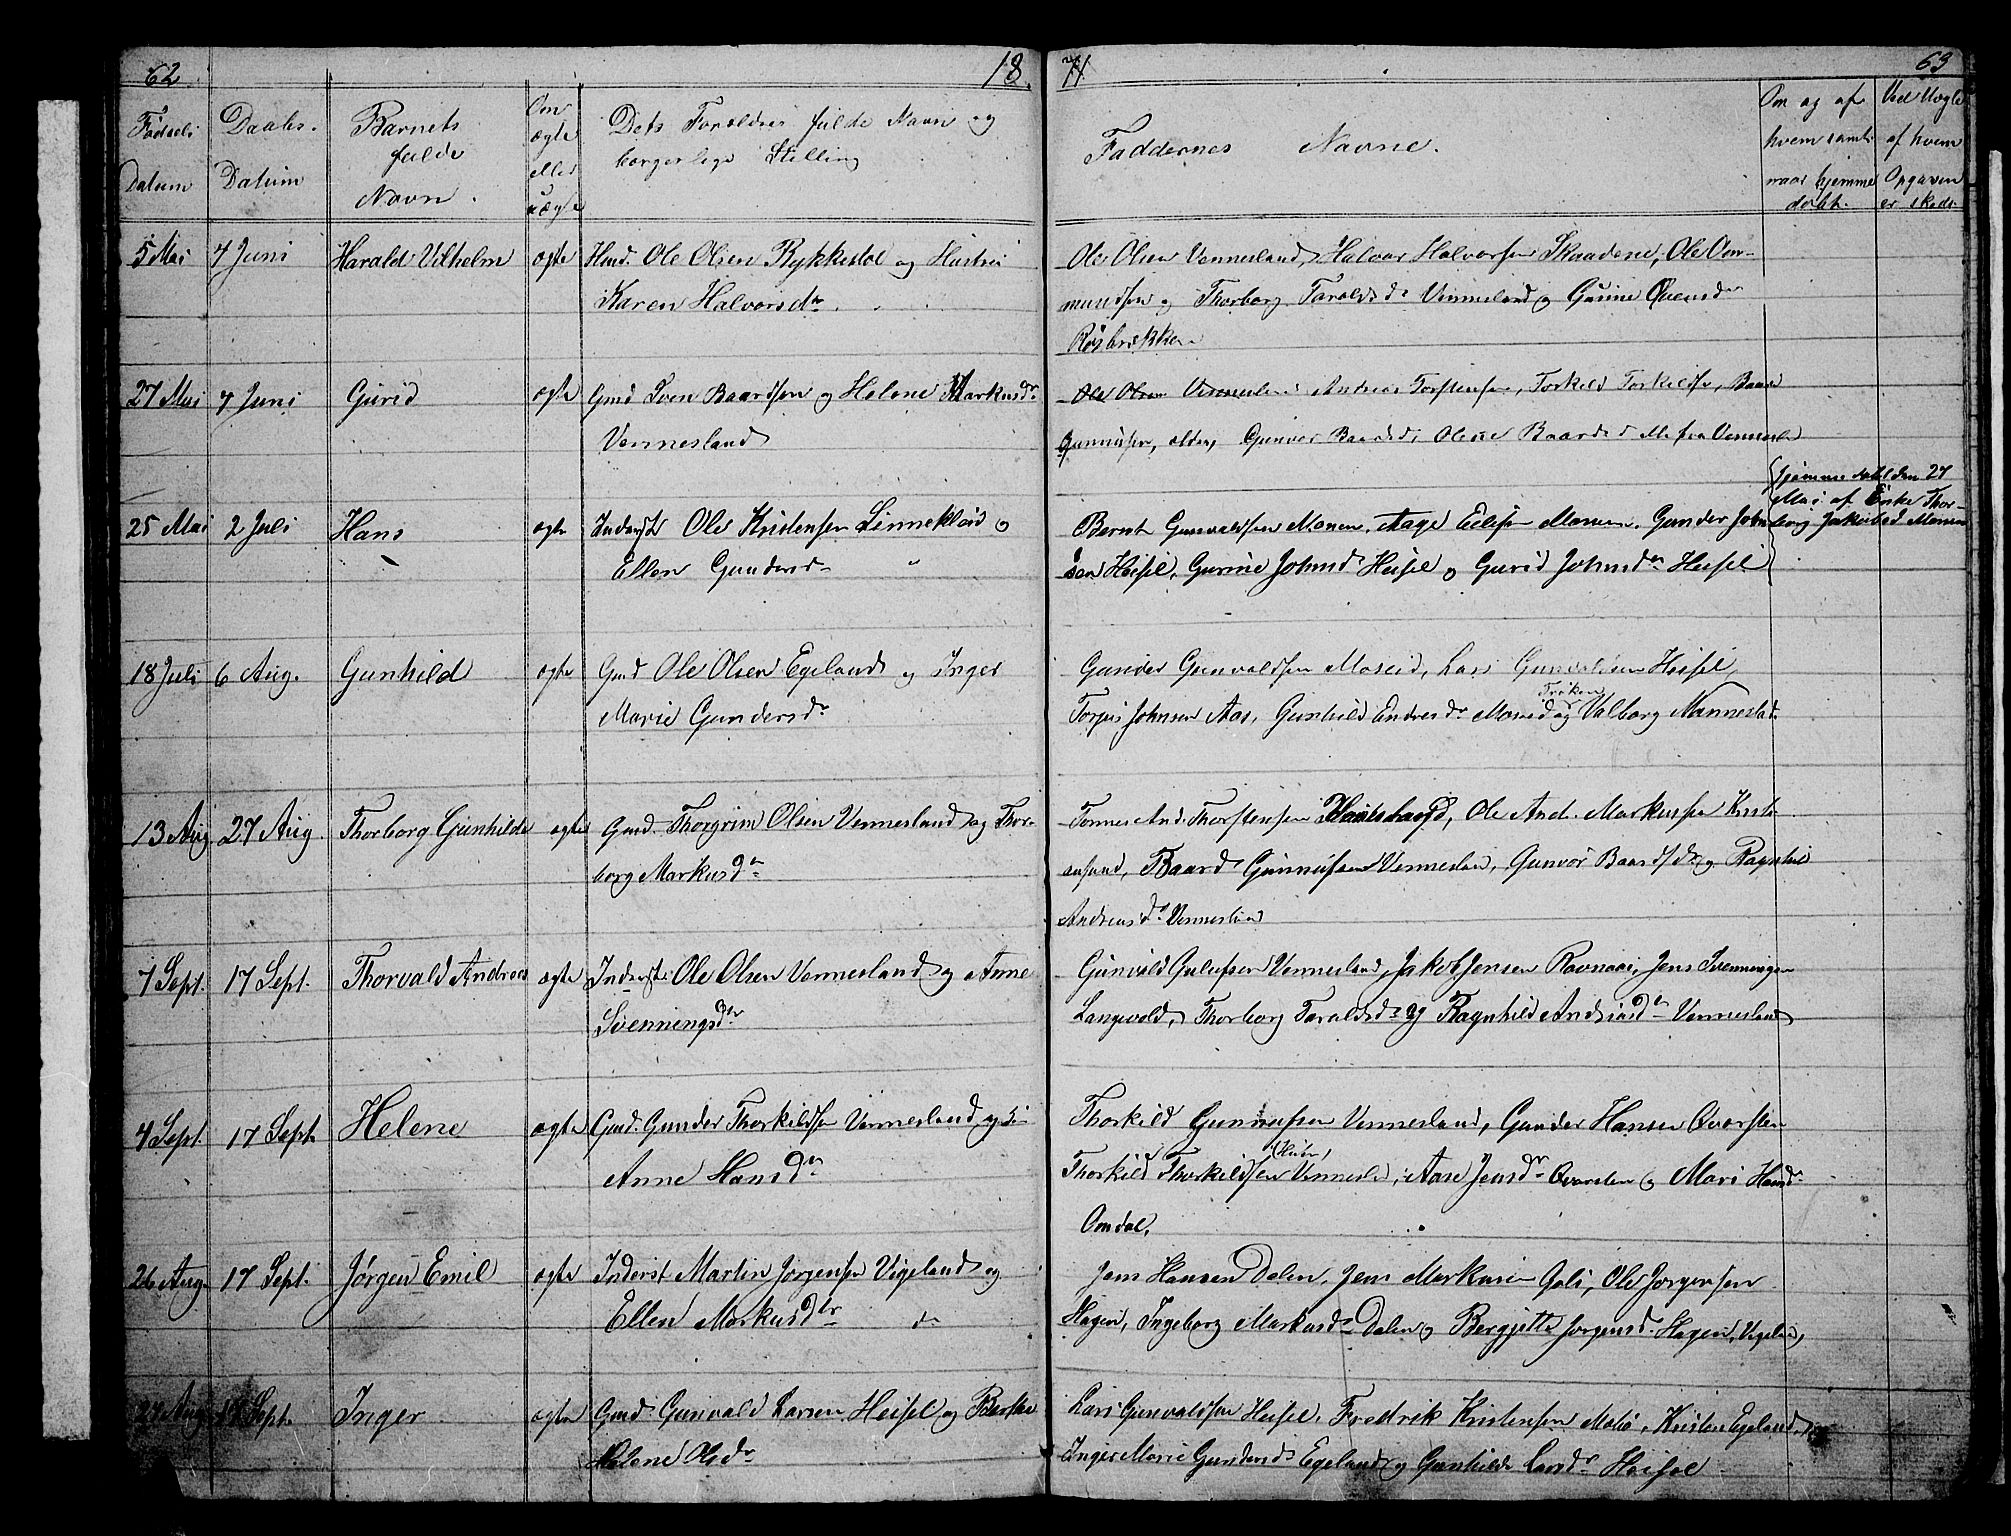 62 18
Fødsels Datum
Daabs Datum
Barnets fulde Navn.
Om ægte eller uægte
Dets Forældres fulde Navn og
borgerlige Stilling
5 Mai 4 Juni Harald Vilhelm ægte Hmd. Ole Olsen Rykkestøl og Hustru
Karen Halvorsdr.
27 Mai 4 Juni Gurid ægte Gmd Sven Baardsen og Helene Markusdr
Vennesland
25 Mai 2 Juli Hans ægte Inderst Ole Kristensen Linnekløv og
Ellen Gundersdr "
18 Juli 6 Aug. Gunhild ægte Gmd Ole Olsen Egeland og Inger
Marie Gundersdr
13 Aug 27 Aug. Thorborg Gunhilde ægte Gmd. Thorgrim Olsen Vennesland og Thor-
borg Markusdr
7 Sept. 17 Sept. Thorvald Andreas ægte Inderst Ole Olsen Vennesland og Anne
Svenningsdtr
4 Sept. 17 Sept. Helene ægte Gmd. Gunder Thorkildsen Vennesland og
Anne Hansdr
26 Aug. 17 Sept. Jørgen Emil ægte Inderst Martin Jørgensen Vigeland og
Ellen Markusdtr
27 Aug 17 Sept. Inger ægte Gmd. Gunvald Larsen Heisel og
Helene Olsdr
71 63
Faddernes Navne.
Om og af
hvem samt
naar hjemme
døbt.
Ved Uægte
af hvem
Opgaven
er skedt
Ole Olsen Vennesland, Halvor Halvorsen Skaadene, Ole Om-
mundsen og Thorborg Taraldsdr Vennesland og Gurine
Røsbrække
Ole Olsen Andreas Torstensen, Torkild Torkildsen, Baard
Gunnufsen, ældre, Gunvor Baardsd, Olene Baardsd Alle fra Vennesla
Bernt Gunvaldsen Moseen, Aage Gunder John-
sen Heisel, Gurine Johnsd Heisel og Gurid Johnsdr Heisel
Hjemmedøbt den 27
Mai af Enke Thor-
borg Jakobsd
Gunder Gunvaldsen Moseid, Lars Gunvaldsen Heisel,
Frøken
Torjus Johnsen Aas, Gunhild Endresdr Moseid og Valborg Nannestad
Tønnes And. Thorstensen Ole And. Markussen Kristi-
ansand, Baard Gunnufsen Vennesland, Gunvor Baardsdr og Ragnhild
Andreasdr Vennesland
Gunvald Gulufsen Vennesland, Jakob Jensen Ravnaas, Jens Svenningsen
Langevold, Thorborg Taraldsdr og Ragnhild Andreasdr Vennesland
Thorkild Gunnufsen Vennesland, Gunder Hansen Qvarsten
Thorkild Thorkildsen Vennesland, Aase Jensdr Qvarsten og Mari Hansdr
Omdal.
Jens Hansen Dalen, Jens Markusen Ole Jørgensen
Hagen, Ingeborg Markusdr Dalen og Bergjitte Jørgensd. Hagen, Vigeland,
Lars Gunvaldsen Heisel, Fredrik Kristensen Kristen Egeland,
Inger Marie Gundersd Egeland og Gunhilde Larsdr Heisel